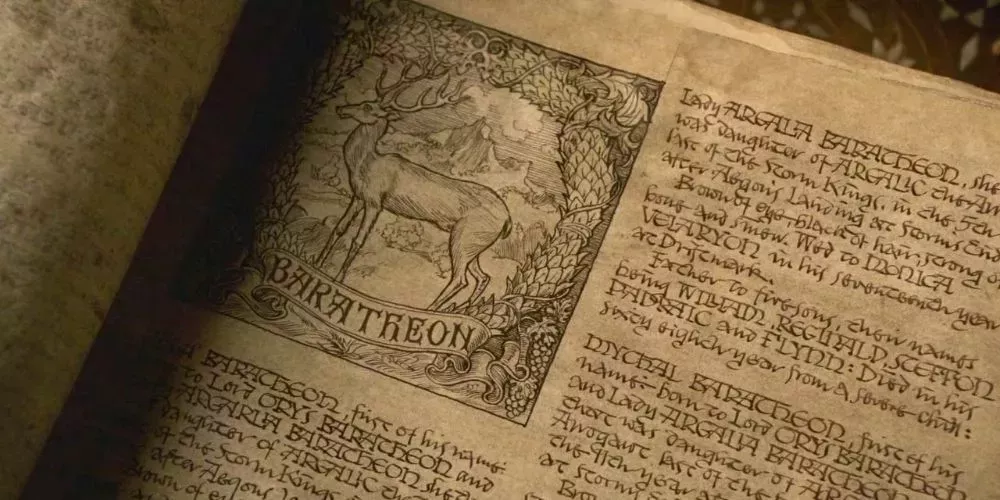 BARATHEON
BARATHEON, first of his name:
to Lord ORYS BARATHEON and
ARGARLIA BARATHEON she that
daughter of ARGALIC the
of the Storm Kings
after Aegons
Brown of eye
Lady ARGALIA BARATHEON, she
was daughter of ARGALIC the Arr
last of the Storm Kings, in the 5th
after Aegons Landing at Storms End
Brown of eye–black of hair, strong of
bone and sinew. Wed to MONICA
VELARYON in his seventeenth year
at Driftmark.
Father to five sons, their names
being WILLIAM, REGINALD, STEFFON
PADRAIC and FLYNN: Died in his
sixty eighth year from a severe chill:
MYCHAL BARATHEON, first of his
name: born to Lord ORYS BARATHEON
and Lady ARGALIA BARATHEON
that was daughter of
Arrogant last of the
the 9th year
at Storms